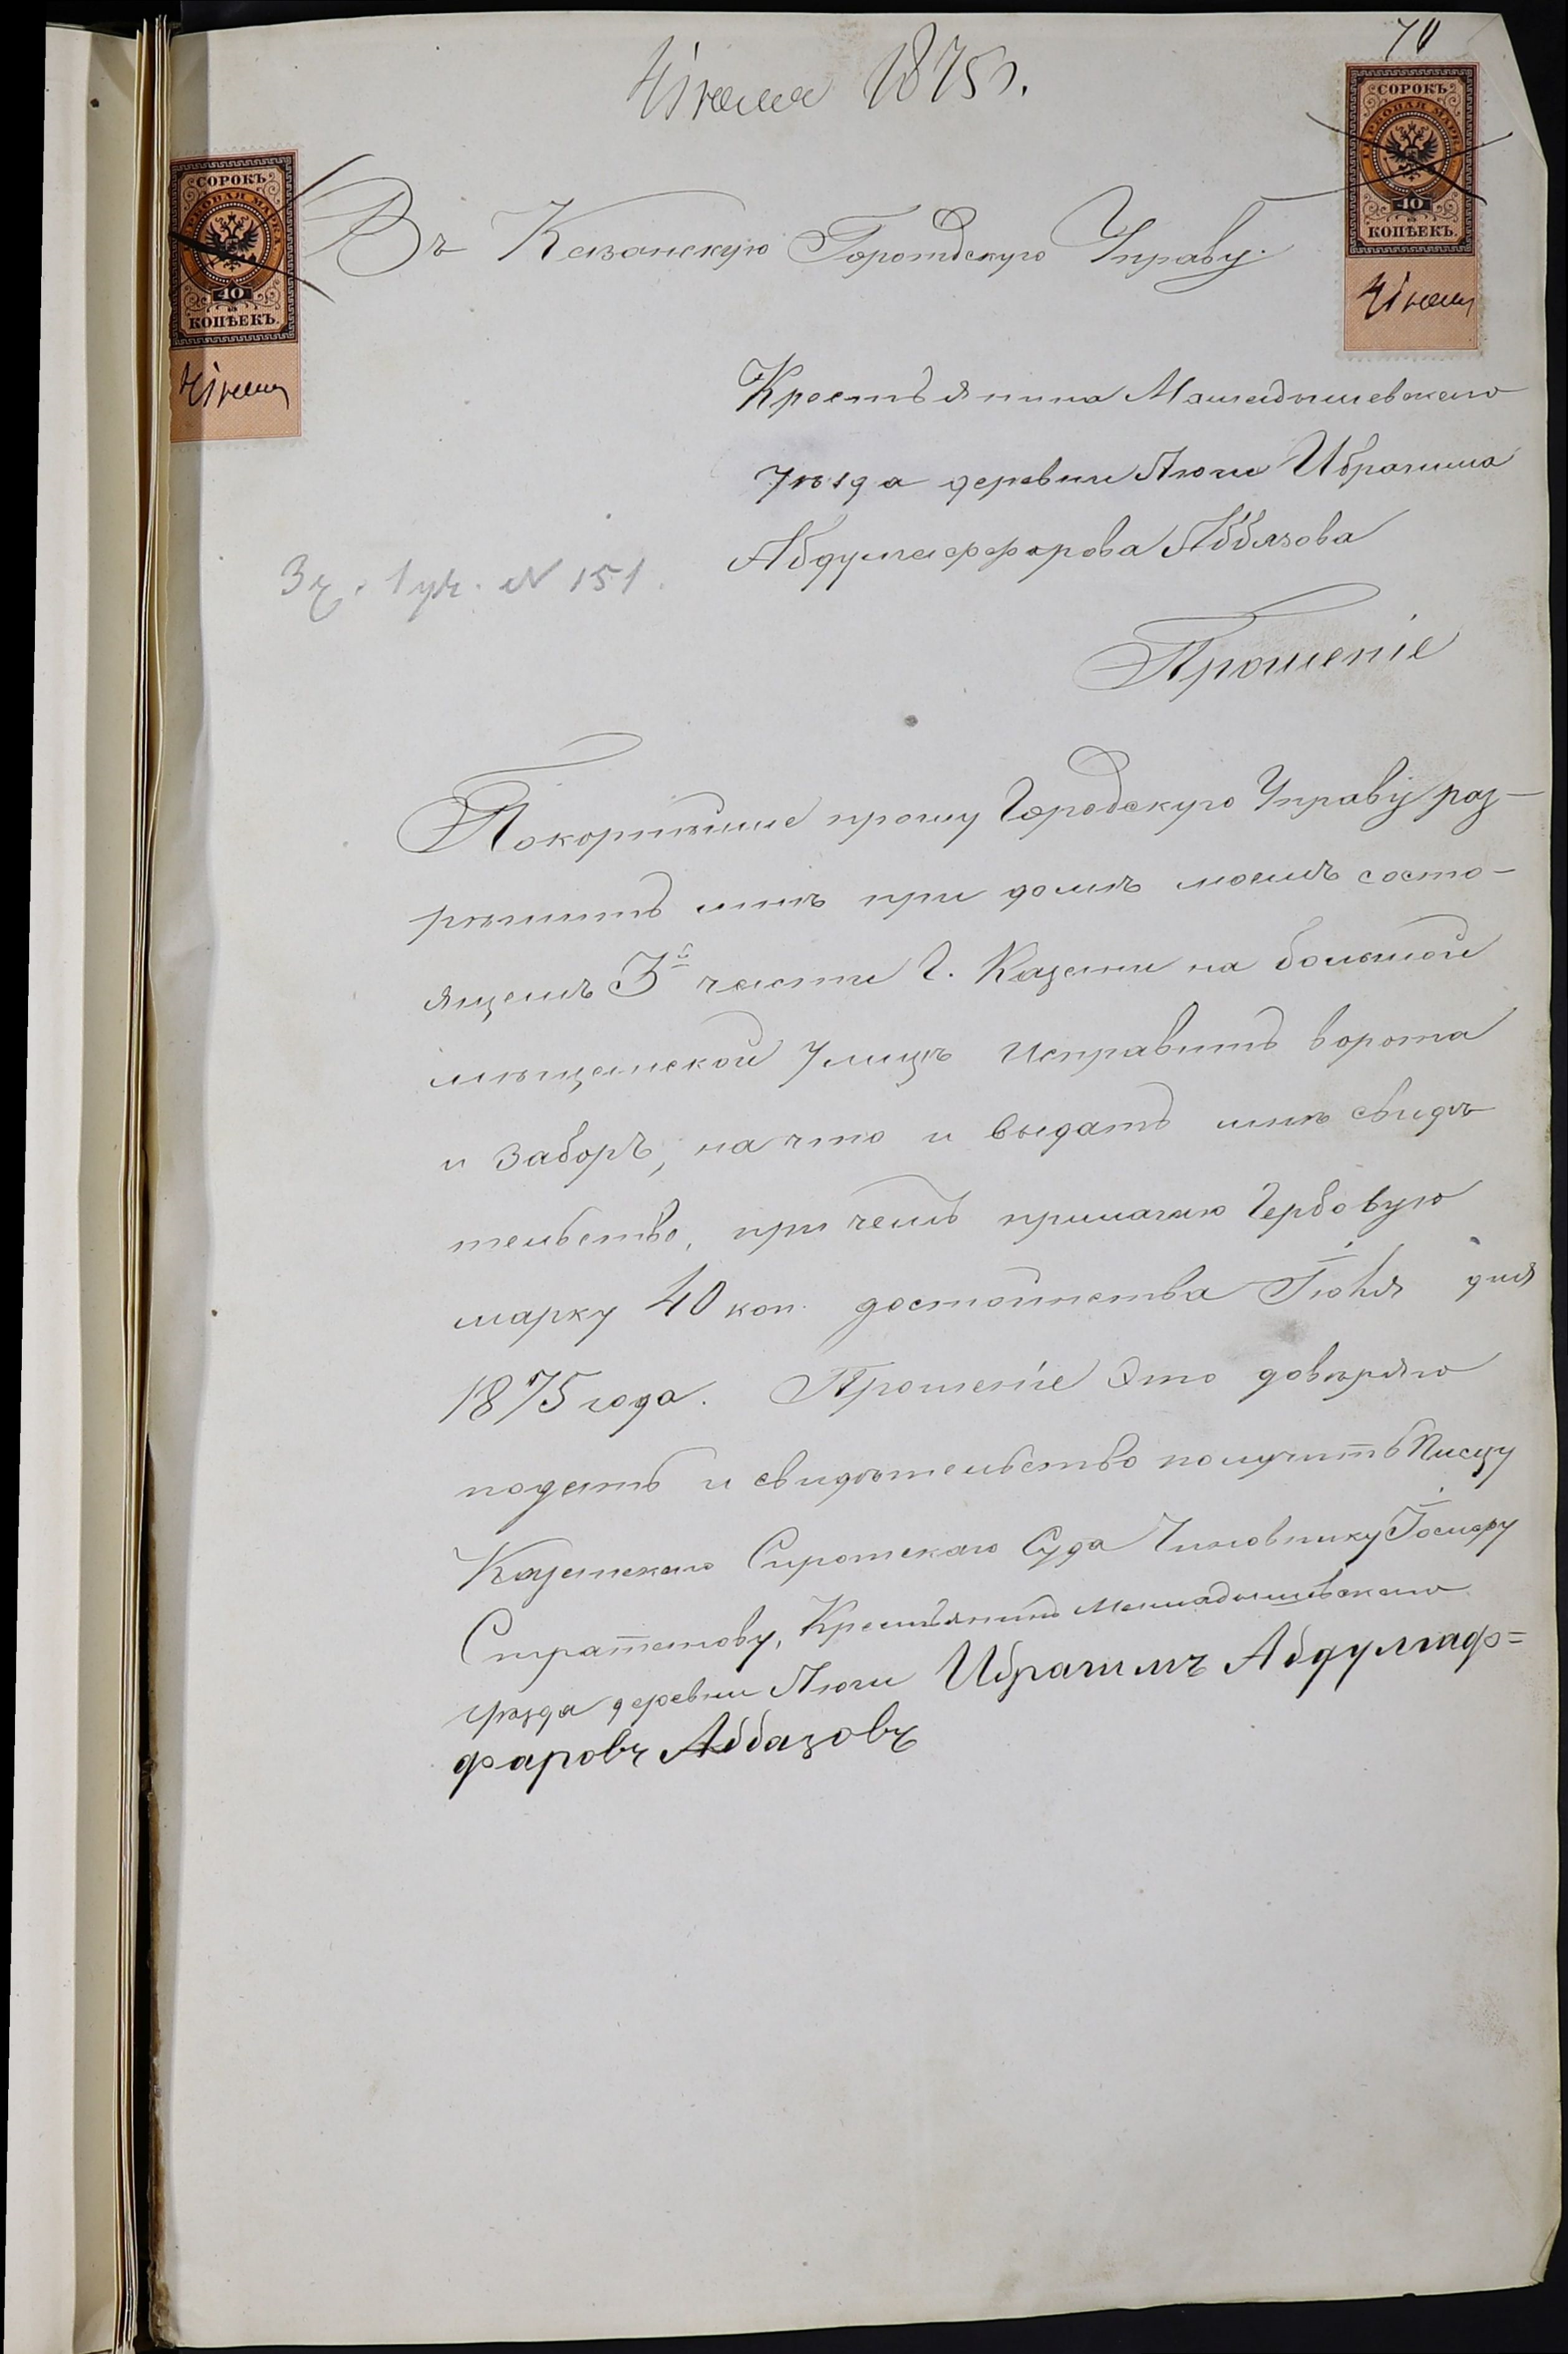 70
4 іюля 1875 г.
СОРОКЪ
ГЕРБОВАЯ МАРКА
40
КОПѢЕКЪ.
4 іюля
СОРОКЪ
ГЕРБОВАЯ МАРКА
40
КОПѢЕКЪ.
4 іюля
Въ Казанскую Горотдскую Управу.
Крестьянина Мамадышевскаго
Уѣзда деревни Аюги Ибрагима
Абдулгаффарова Аббязова
3 ч. 1 уч. N 151.
Прошеніе
Покорнѣише прошу Городскую Управу раз-
рѣшить мнѣ при домѣ моемъ состо-
ящемъ 3й части г. Казани на большой
мѣщанской Улицѣ исправить ворота
и заборъ, на что и выдать мнѣ свидѣ
тельство, при чемъ прилагаю Гербовую
марку 40 коп. достоинства Іюля дня
1875 года. Прошеніе Это довѣряю
подать и свидѣтельство получить Писцу
Казанскаго Сиротскаго Суда Чиновнику
Крестьянинъ Мамадышевскаго
уѣзда деревни Аюги Ибрагимъ Абдулгаф=
фаровъ Аббазовъ